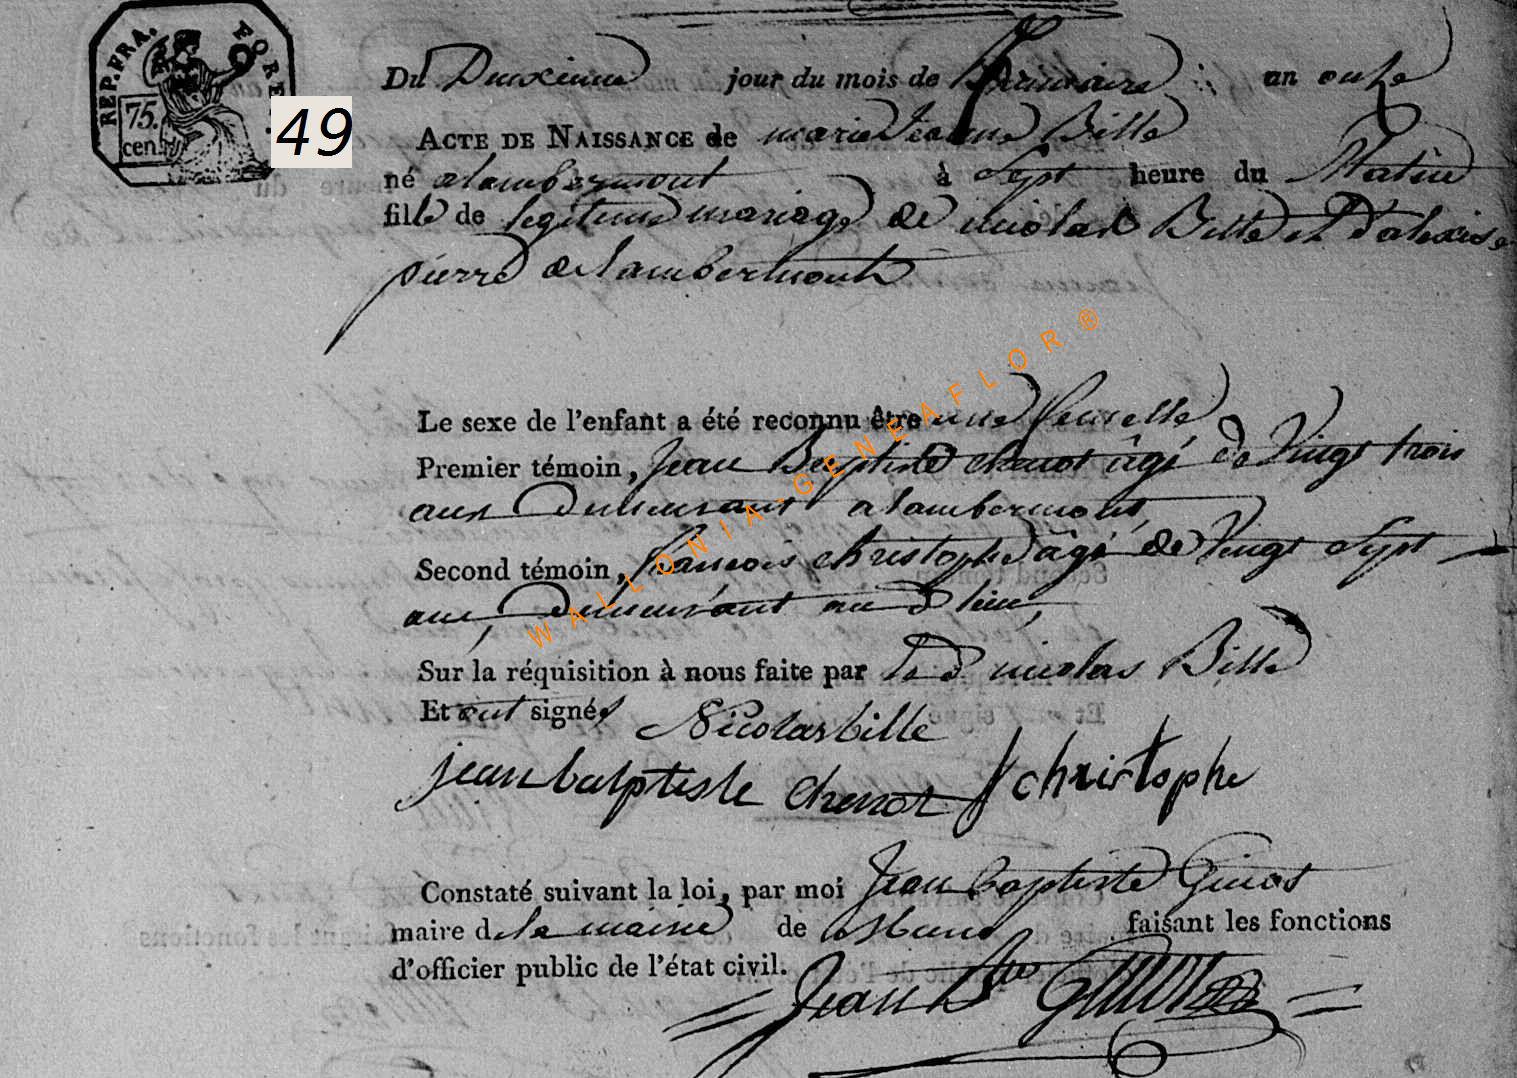 REP. FRA.
75.
cen.
49
Du Deuxieme jour du mois de frimaire an onze
ACTE DE NAISSANCE de marie Jeanne Bille
né a lambermont à Sept heure du Matin
fille de legitime mariage de nicolas Bille et d'alexise
pierre de lambermont
Le sexe de l'enfant a été reconnu être une femelle
Premier témoin, Jean Baptiste chenot âgé de Vingt trois
ans Demeurant a lambermont
Second témoin, francois christophe âgé de Vingt Sept
ans, Demeurant au d lieu,
Sur la réquisition à nous faite par le d nicolas Bille
Et ont signés Nicolas bille
jean balptiste chenot f christophe
Constaté suivant la loi, par moi Jean baptiste
maire de la mairie de faisant les fonctions
d'officier public de l'état civil.
Jean Bte
WALLONIA-GENEAFLOR®